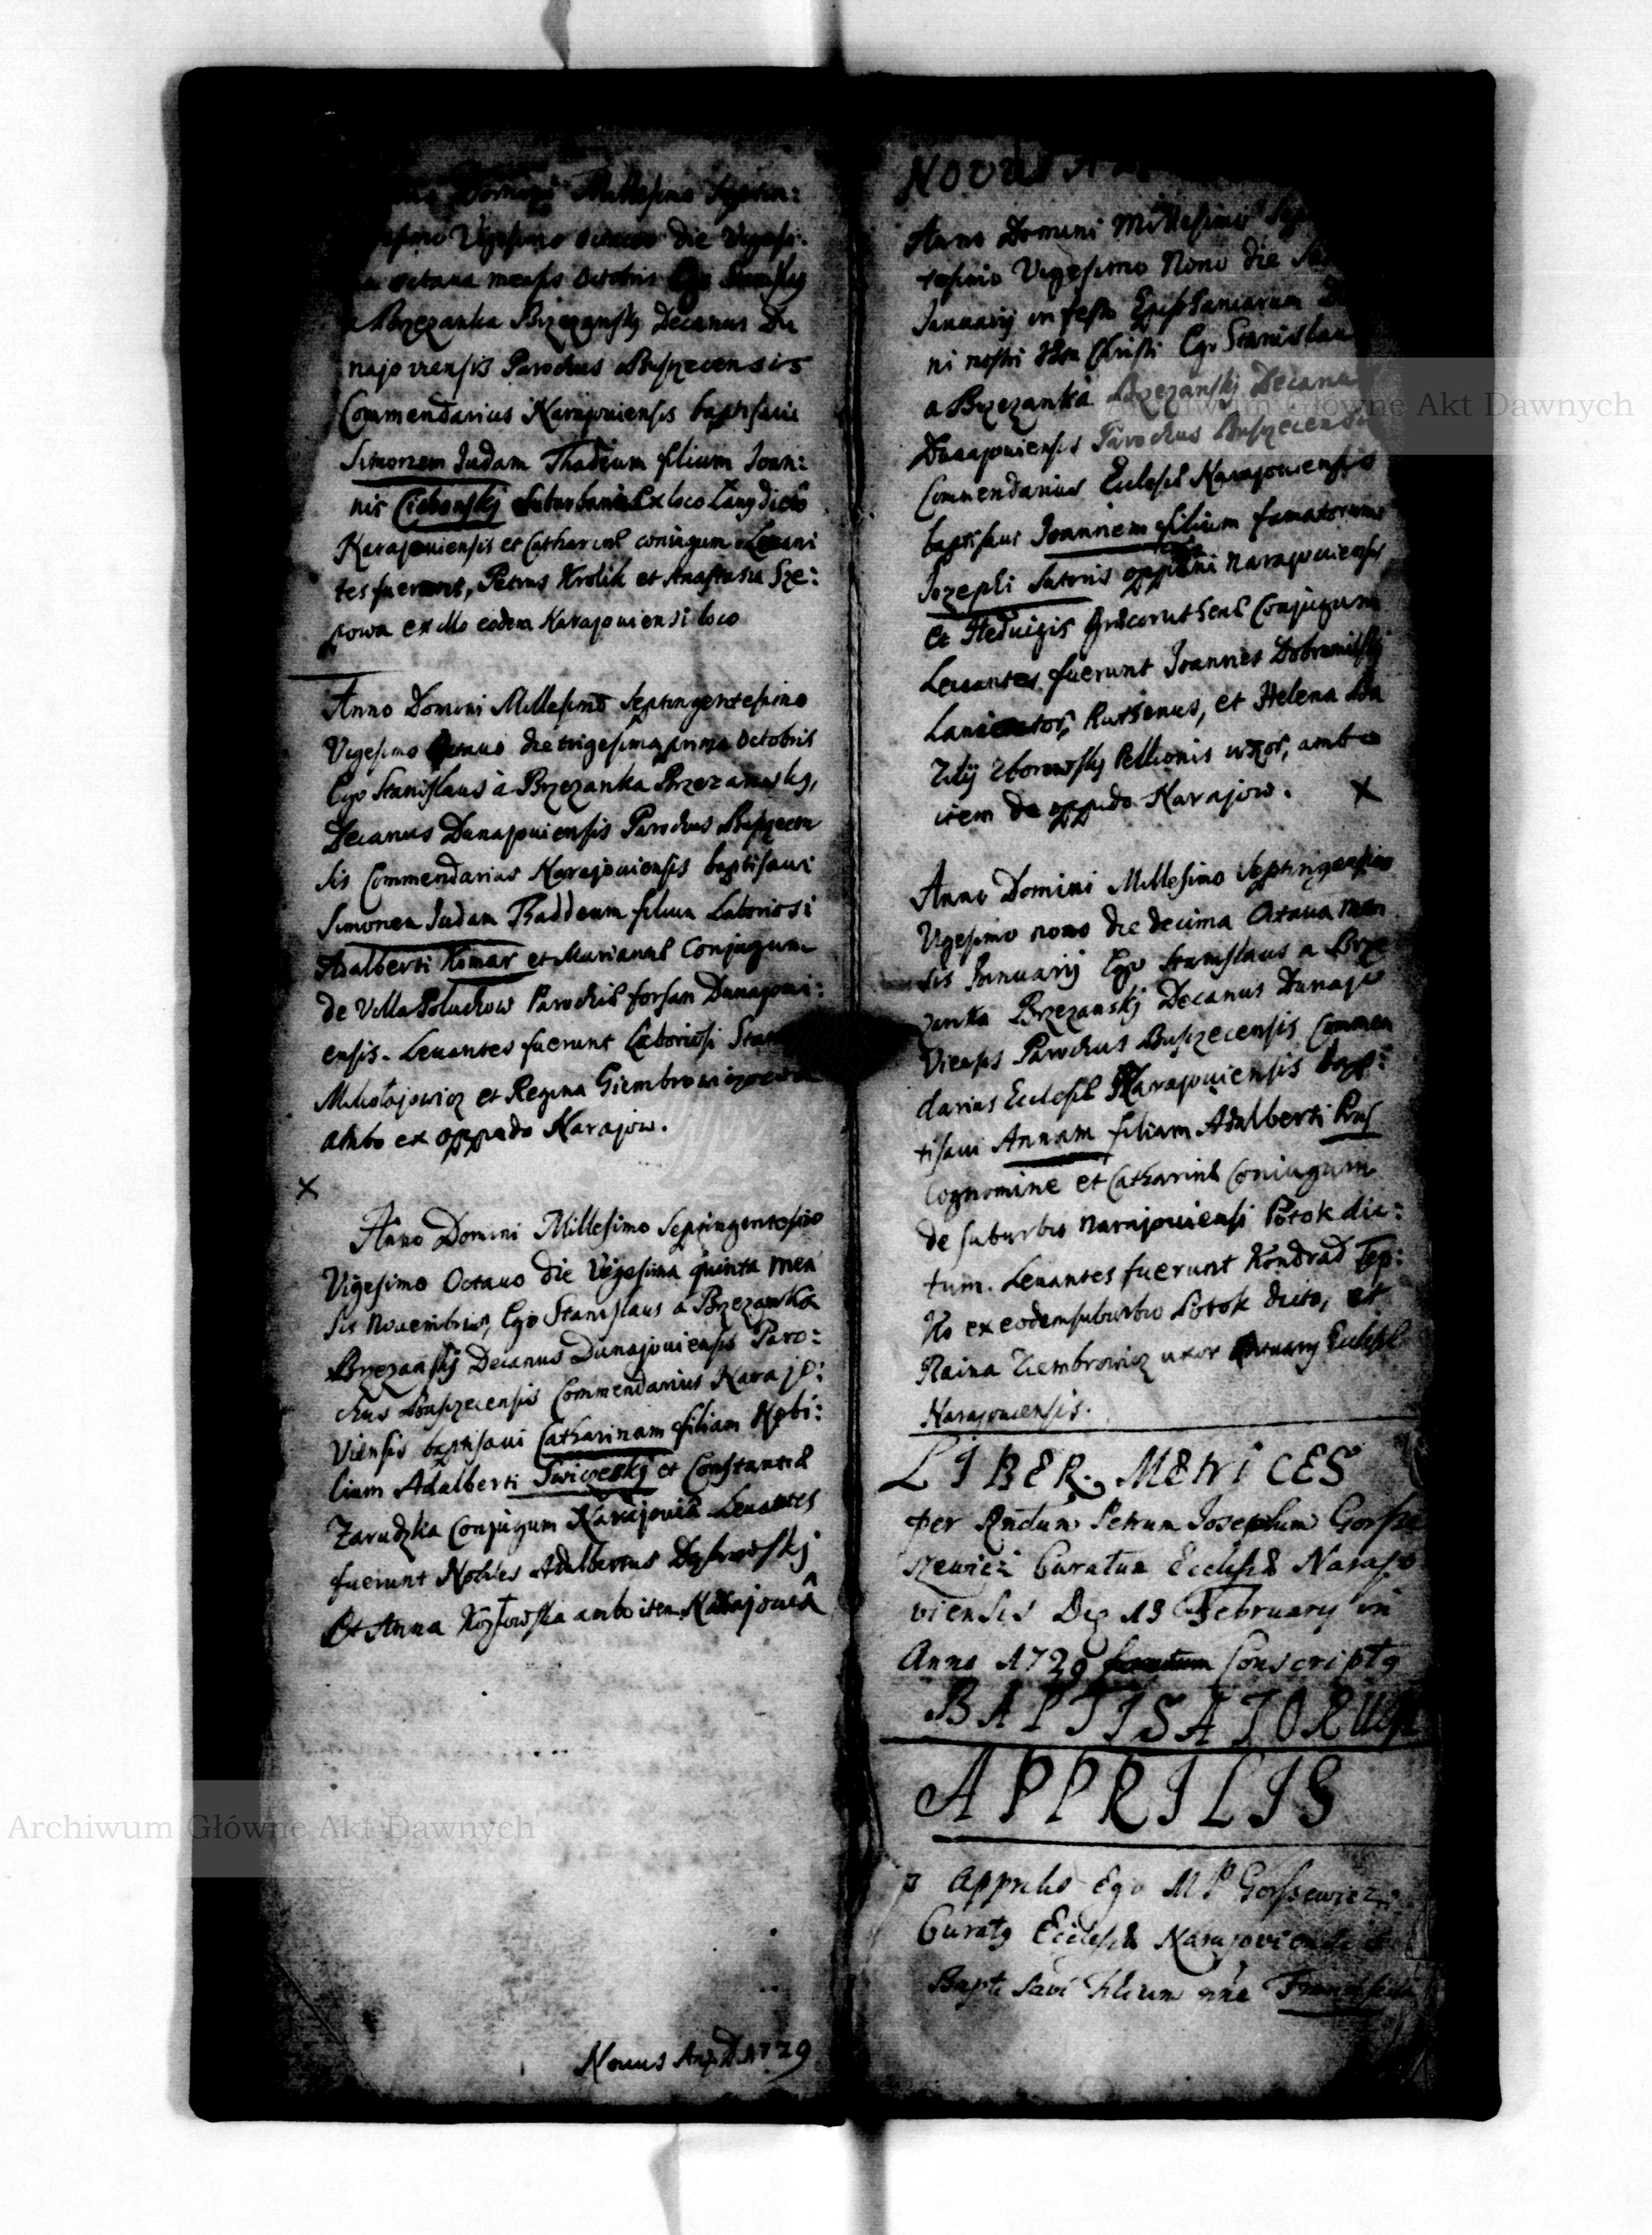 Domini Millesimo Septin:
Vigesimo octavo die Vigesi:
octava mensis octobris Ego Stanislaus
a Brzezanka Brzezanskj Decanus Du
najoviensis Parochus Buszecensis
Commendarius Narajouiensis baptisaui
Simonem Iudam Thadeum filium Ioan:
nis Ciebonskj suburbani ex loco Lany dicto
Narajouiensis et Catharinæ coniugum Leuan
tes fuerunt, Petrus Krolik et Anastasia Sze:
powa ex illo eodem Narajouiensi loco
Anno Domini Millesimo Septingentesimo
Vigesimo octauo die trigesima prima octobris
Ego Stanislaus à Brzezanka Brzezanskj,
Decanus Dunajouiensis Parochus Buszecen
sis Commendarius Narajouiensis baptisaui
Simonem Iudam Thaddeum filium Laboriosi
Adalberti Komar et Mariannæ Conjugum
de Villa Poluchow Parochiæ forsan Dunajoui:
ensis. Leuantes fuerunt Laboriosi Stan
Mikołajowicz et Regina Giembrowiczowa
ambo ex oppido Narajow.
X
Anno Domini Millesimo Septingentesimo
Vigesimo Octauo die Vigesima quinta men
sis Nouembris, Ego Stanislaus a Brzezanka
Brzezanskj Decanus Dunajouiensis Paro:
chus Buszecensis Commendarius Narajo:
Viensis baptisaui Catharinam filiam Nobi:
lium Adalberti Swiczeskj et Constantiæ
Zarudzka Conjugum Narajouiâ Leuantes
fuerunt Nobiles Adalbertus Dąbrowskj
Et Anna Kozłowska ambo item Narajouiâ
Nouus An. D. 1729
NOVUS
Anno Domini Millesimo
tesimo Vigesimo Nono die
Januarij in festo Epiphaniarum
ni nostri Christi Ego Stanislaus
a Brzezanka Brzezanskj Decanus
Dunajouiensis Parochus Buszecensis
Commendarius Ecclesiæ Narajouiensis
baptisaui Ioannem filium famatorum
Iozephi Sutoris oppidani Narajouiensis
et Heduigis Græcoruthenæ Conjugum
Leuantes fuerunt Joannes Dobromilskj
Ruthenus, et Helena Ba
Zborowskj Pellionis uxor, ambo
item de oppido Narajow. X
Anno Domini Millesimo Septingentesimo
Vigesimo nono die decima Octaua men
sis Januarij Ego Stanislaus a Brze
zanka Brzezanskj Decanus Dunajo
Viensis Parochus Buszecensis Commen
darius Ecclesiæ Narajouiensis bap:
tisaui Annam filiam Adalberti Rus
Cognomine et Catharinæ Coniugum
de suburbio Narajouiensi Potok dic:
tum. Leuantes fuerunt Kondrad Tep:
Ko ex eodem suburbio Potok dicto, et
Raina Ziembrowicz uxor Ecclesiæ
Narajouiensis.
LIBER METRICES
per Rndum Petrum Josephum Gorsze
szewicz Curatum Ecclesiæ Narajo
viensis Die 13 February in
Anno 1729 Conscriptq
BAPTISATORUM
APPRILIS
3 Apprilis Ego M P Gorszewicz
Curatq Ecclesiæ Narajoviensis
Baptisavi filium nne